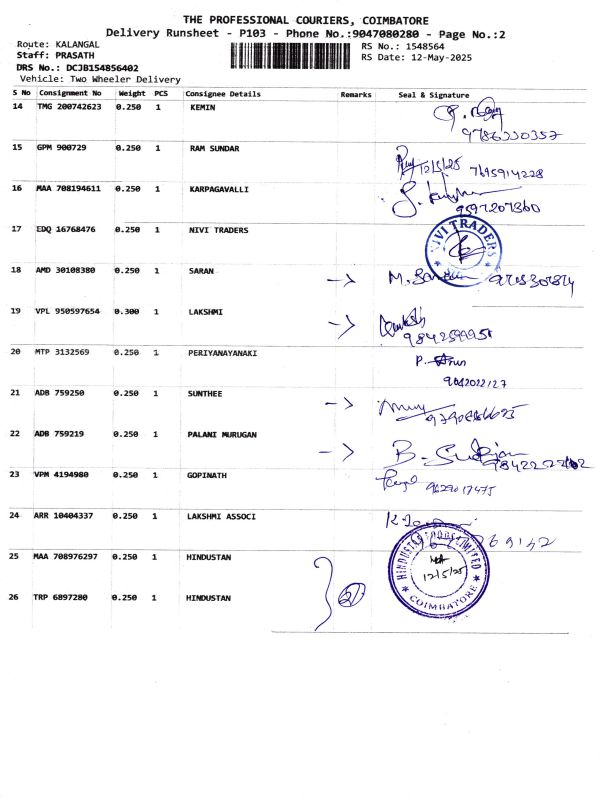 THE PROFESSIONAL COURIERS, COIMBATORE
Delivery Runsheet - P103 - Phone No.:9047080280 - Page No.:2
Route: KALANGAL
RS No.: 1548564
Staff: PRASATH
RS Date: 12-May-2025
DRS No.: DCJB154856402
Vehicle: Two Wheeler Delivery
S No Consignment No Weight PCS Consignee Details Remarks Seal & Signature
14 TMG 200742623 0.250 1 KEMIN
9786330357
15 GPM 900729 0.250 1 RAM SUNDAR
12/5/25 7695914228
16 MAA 708194611 0.250 1 KARPAGAVALLI
9597207360
17 EDQ 16768476 0.250 1 NIVI TRADERS
NIVI TRADERS
18 AMD 30108380 0.250 1 SARAN
19 VPL 950597654 0.300 1 LAKSHMI
20 MTP 3132569 0.250 1 PERIYANAYANAKI
21 ADB 759250 0.250 1 SUNTHEE
22 ADB 759219 0.250 1 PALANI MURUGAN
23 VPM 4194980 0.250 1 GOPINATH
9629017475
24 ARR 10404337 0.250 1 LAKSHMI ASSOCI
25 MAA 708976297 0.250 1 HINDUSTAN
12/5/25
COIMBATORE
26 TRP 6897280 0.250 1 HINDUSTAN
2